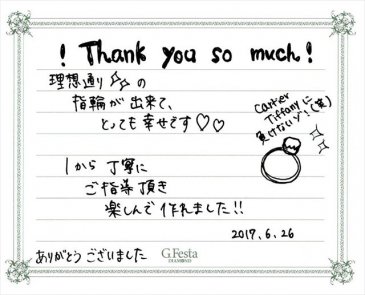 ! Thank you so much !
理想通り✨の
指輪が出来て、
とっても幸せです♡♡
Cartier
Tiffanyに
負けないゾ!(笑)
1から丁寧に
ご指導頂き
楽しんで作れました!!
2017.6.26
ありがとうございました
G.Festa
DIAMOND